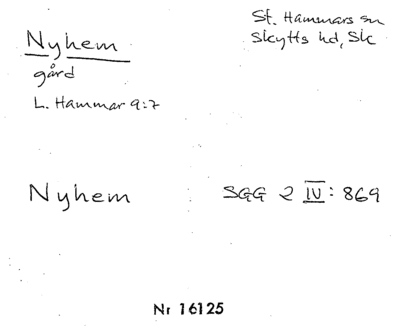 Nyhem
St. Hammars sn
Skytts hd, Sk
gård
L. Hammar 9:7
Nyhem
SGG 2 IV: 869
Nr 16125